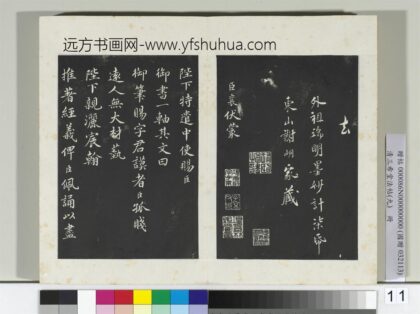 远方书画网-www.yfshuhua.com
去
外祖端明墨妙計柒番
東山謝明宛藏
臣襄伏蒙
陛下特遣中使賜臣
御書一軸其文曰
御筆賜字君謨者臣孤賤
遠人無大材藝
陛下親灑宸翰
推著經義俾臣佩誦以盡
11